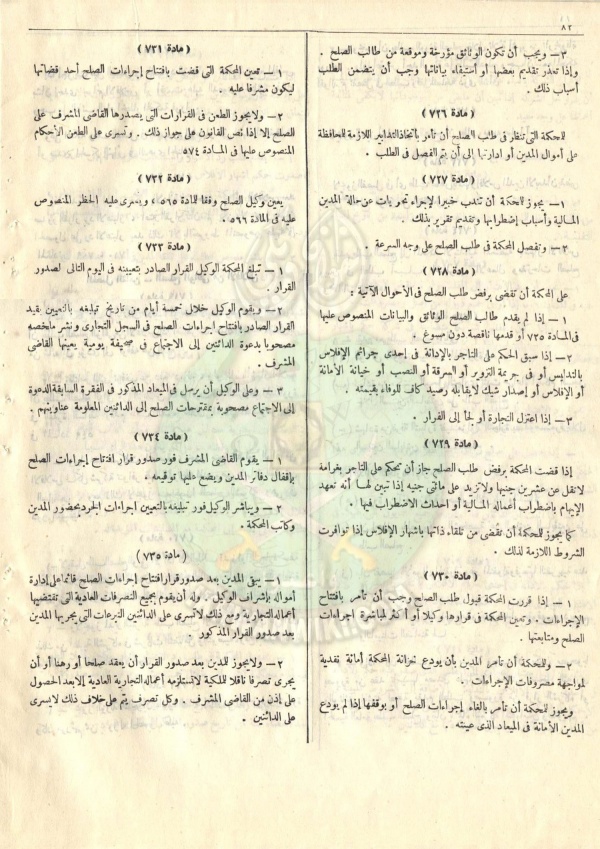 ٨٢
٣ – ويجب أن تكون الوثائق مؤرخة وموقعة من طالب الصلح .
وإذا تعذر تقديم بعضها أو استيفاء بياناتها وجب أن يتضمن الطلب
أسباب ذلك .
( مادة ٧٢٦ )
للمحكمة التى تنظر فى طلب الصلح أن تأمر باتخاذ التدابير اللازمة للمحافظة
على أموال المدين أو ادارتها إلى أن يتم الفصل فى الطلب .
( مادة ٧٢٧ )
١ – يجوز للمحكمة أن تندب خبيرا لإجراء تحريات عن حالة المدين
المالية وأسباب إضطرابها وتقديم تقرير بذلك .
٢ – وتفصل المحكمة فى طلب الصلح على وجه السرعة .
( مادة ٧٢٨ )
على المحكمة أن تقضى برفض طلب الصلح فى الأحوال الآتية :
١ – إذا لم يقدم طالب الصلح الوثائق والبيانات المنصوص عليها
فى المادة ٧٢٥ أو قدمها ناقصة دون مسوغ .
٢ – إذا سبق الحكم على التاجر بالإدانة فى إحدى جرائم الإفلاس
بالتدليس أو فى جريمة التزوير أو السرقة أو النصب أو خيانة الأمانة
أو الإفلاس أو إصدار شيك لايقابله رصيد كاف للوفاء بقيمته .
٣ – إذا اعتزل التجارة أو لجأ إلى الفرار .
( مادة ٧٢٩ )
إذا قضت المحكمة برفض طلب الصلح جاز أن تحكم على التاجر بغرامة
لاتقل عن عشرين جنيها ولاتزيد على مائتى جنيه إذا تبين لها أنه تعهد
الإيهام باضطراب أعماله المالية أو احداث الاضطراب فيها .
كما يجوز للمحكمة أن تقضى من تلقاء ذاتها باشهار الإفلاس إذا توافرت
الشروط اللازمة لذلك .
( مادة ٧٣٠ )
١ – إذا قررت المحكمة قبول طلب الصلح وجب أن تأمر بافتتاح
الإجراءات . وتعين المحكمة فى قرارها وكيلا أو أكثر لمباشرة اجراءات
الصلح ومتابعتها .
٢ – وللمحكمة أن تأمر المدين بأن يودع خزانة المحكمة أمانة نقدية
لمواجهة مصروفات الإجراءات .
ويجوز للمحكمة أن تأمر بالغاء إجراءات الصلح أو بوقفها إذا لم يودع
المدين الأمانة فى الميعاد الذى عينته .
( مادة ٧٣١ )
١ – تعين المحكمة التى قضت بافتتاح إجراءات الصلح أحد قضاتها
ليكون مشرفا عليه .
٢ – ولايجوز الطعن فى القرارات التى يصدرها القاضى المشرف على
الصلح إلا إذا نص القانون على جواز ذلك . وتسرى على الطعن الأحكام
المنصوص عليها فى المادة ٥٧٤
( مادة ٧٣٢ )
يعين وكيل الصلح وفقا للمادة ٥٦٥ ، ويسرى عليه الحظر المنصوص
عليه فى المادة ٥٦٦ .
( مادة ٧٣٣ )
١ – تبلغ المحكمة الوكيل القرار الصادر بتعيينه فى اليوم التالى لصدور
القرار .
٢ – ويقوم الوكيل خلال خمسة أيام من تاريخ تبليغه بالتعيين بقيد
القرار الصادر بافتتاح اجراءات الصلح فى السجل التجارى ونشر ملخصه
مصحوبا بدعوة الدائنين إلى الاجتماع فى صحيفة يومية يعينها القاضى
المشرف .
٣ – وعلى الوكيل أن يرسل فى الميعاد المذكور فى الفقرة السابقة الدعوة
إلى الاجتماع مصحوبة بمقترحات الصلح إلى الدائنين المعلومة عناوينهم .
( مادة ٧٣٤ )
١ – يقوم القاضى المشرف فور صدور قرار افتتاح إجراءات الصلح
بإقفال دفاتر المدين ويضع عليها توقيعه .
٢ – ويباشر الوكيل فور تبليغه بالتعيين اجراءات الجرد بحضور المدين
وكاتب المحكمة .
( مادة ٧٣٥ )
١ – يبقى المدين بعد صدور قرار افتتاح إجراءات الصلح قائما على إدارة
أمواله بإشراف الوكيل . وله أن يقوم بجميع التصرفات العادية التى تقتضيها
أعماله التجارية ومع ذلك لاتسرى على الدائنين التبرعات التى يجريها المدين
بعد صدور القرار المذكور .
٢ – ولايجوز للمدين بعد صدور القرار أن يعقد صلحا أو رهنا أو أن
يجرى تصرفا ناقلا للملكية لاتستلزمه أعماله التجارية العادية إلا بعد الحصول
على إذن من القاضى المشرف . وكل تصرف يتم على خلاف ذلك لايسرى
على الدائنين .